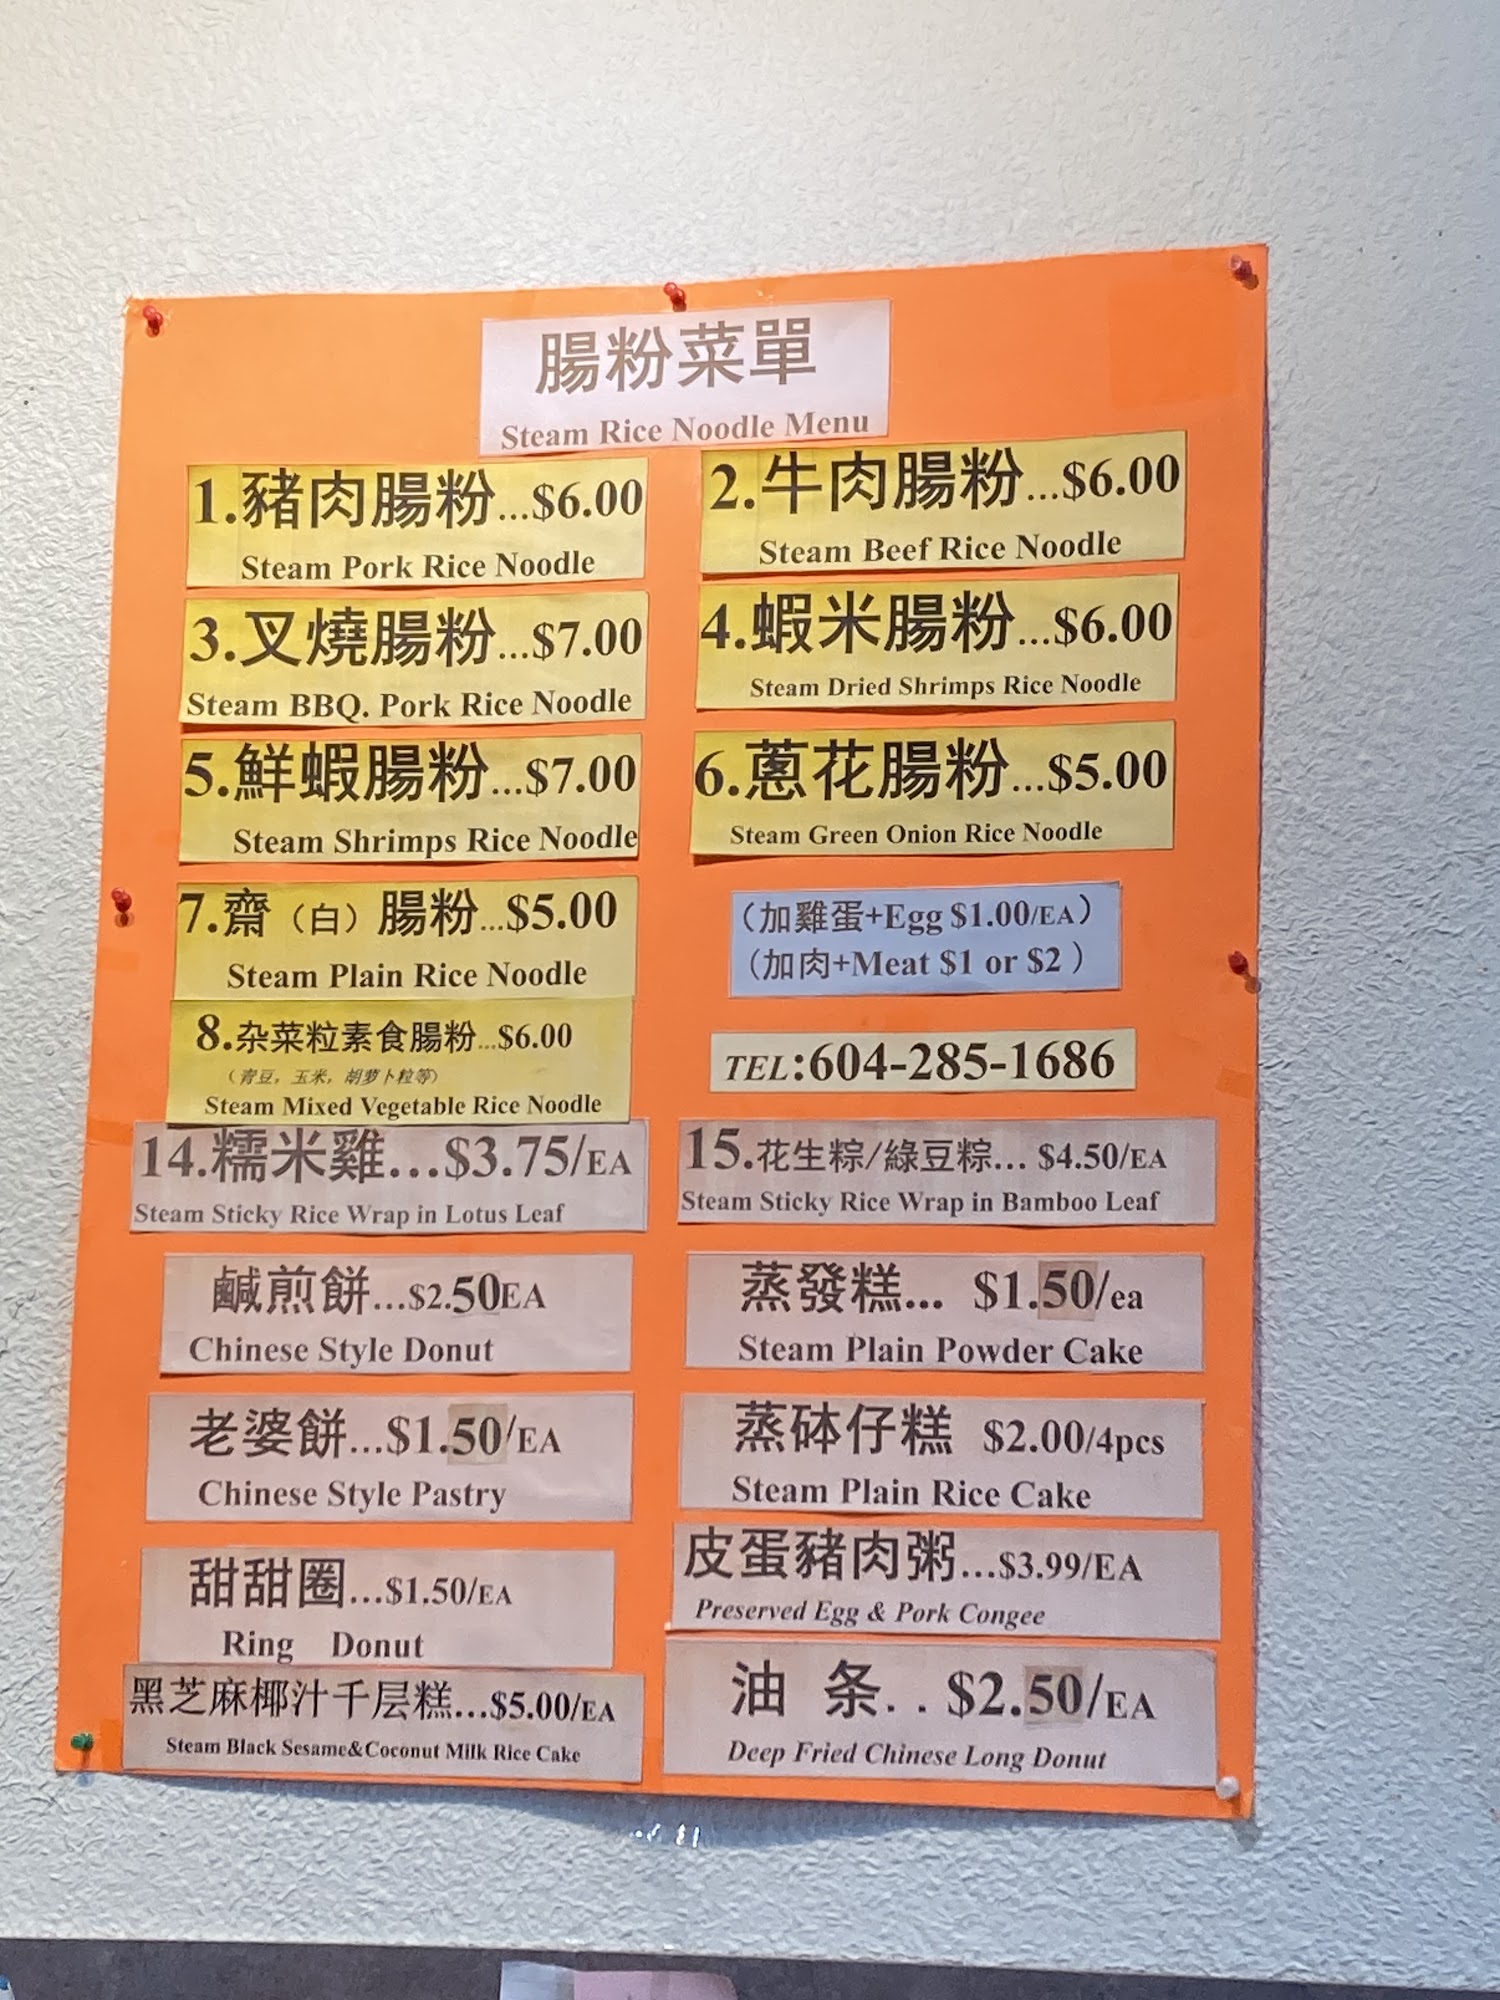 腸粉菜單
Steam Rice Noodle Menu
1.豬肉腸粉...$6.00
Steam Pork Rice Noodle
2.牛肉腸粉...$6.00
Steam Beef Rice Noodle
3.叉燒腸粉...$7.00
Steam BBQ. Pork Rice Noodle
4.蝦米腸粉...$6.00
Steam Dried Shrimps Rice Noodle
5.鮮蝦腸粉...$7.00
Steam Shrimps Rice Noodle
6.蔥花腸粉...$5.00
Steam Green Onion Rice Noodle
7.齋（白）腸粉...$5.00
Steam Plain Rice Noodle
（加雞蛋+Egg $1.00/EA）
（加肉+Meat $1 or $2 ）
8.杂菜粒素食腸粉...$6.00
（青豆，玉米，胡萝卜粒等）
Steam Mixed Vegetable Rice Noodle
TEL:604-285-1686
14.糯米雞...$3.75/EA
Steam Sticky Rice Wrap in Lotus Leaf
15.花生粽/綠豆粽... $4.50/EA
Steam Sticky Rice Wrap in Bamboo Leaf
鹹煎餅...$2.50EA
Chinese Style Donut
蒸發糕... $1.50/ea
Steam Plain Powder Cake
老婆餅...$1.50/EA
Chinese Style Pastry
蒸砵仔糕 $2.00/4pcs
Steam Plain Rice Cake
甜甜圈...$1.50/EA
Ring Donut
皮蛋豬肉粥...$3.99/EA
Preserved Egg & Pork Congee
黑芝麻椰汁千层糕...$5.00/EA
Steam Black Sesame&Coconut Milk Rice Cake
油 条. . $2.50/EA
Deep Fried Chinese Long Donut